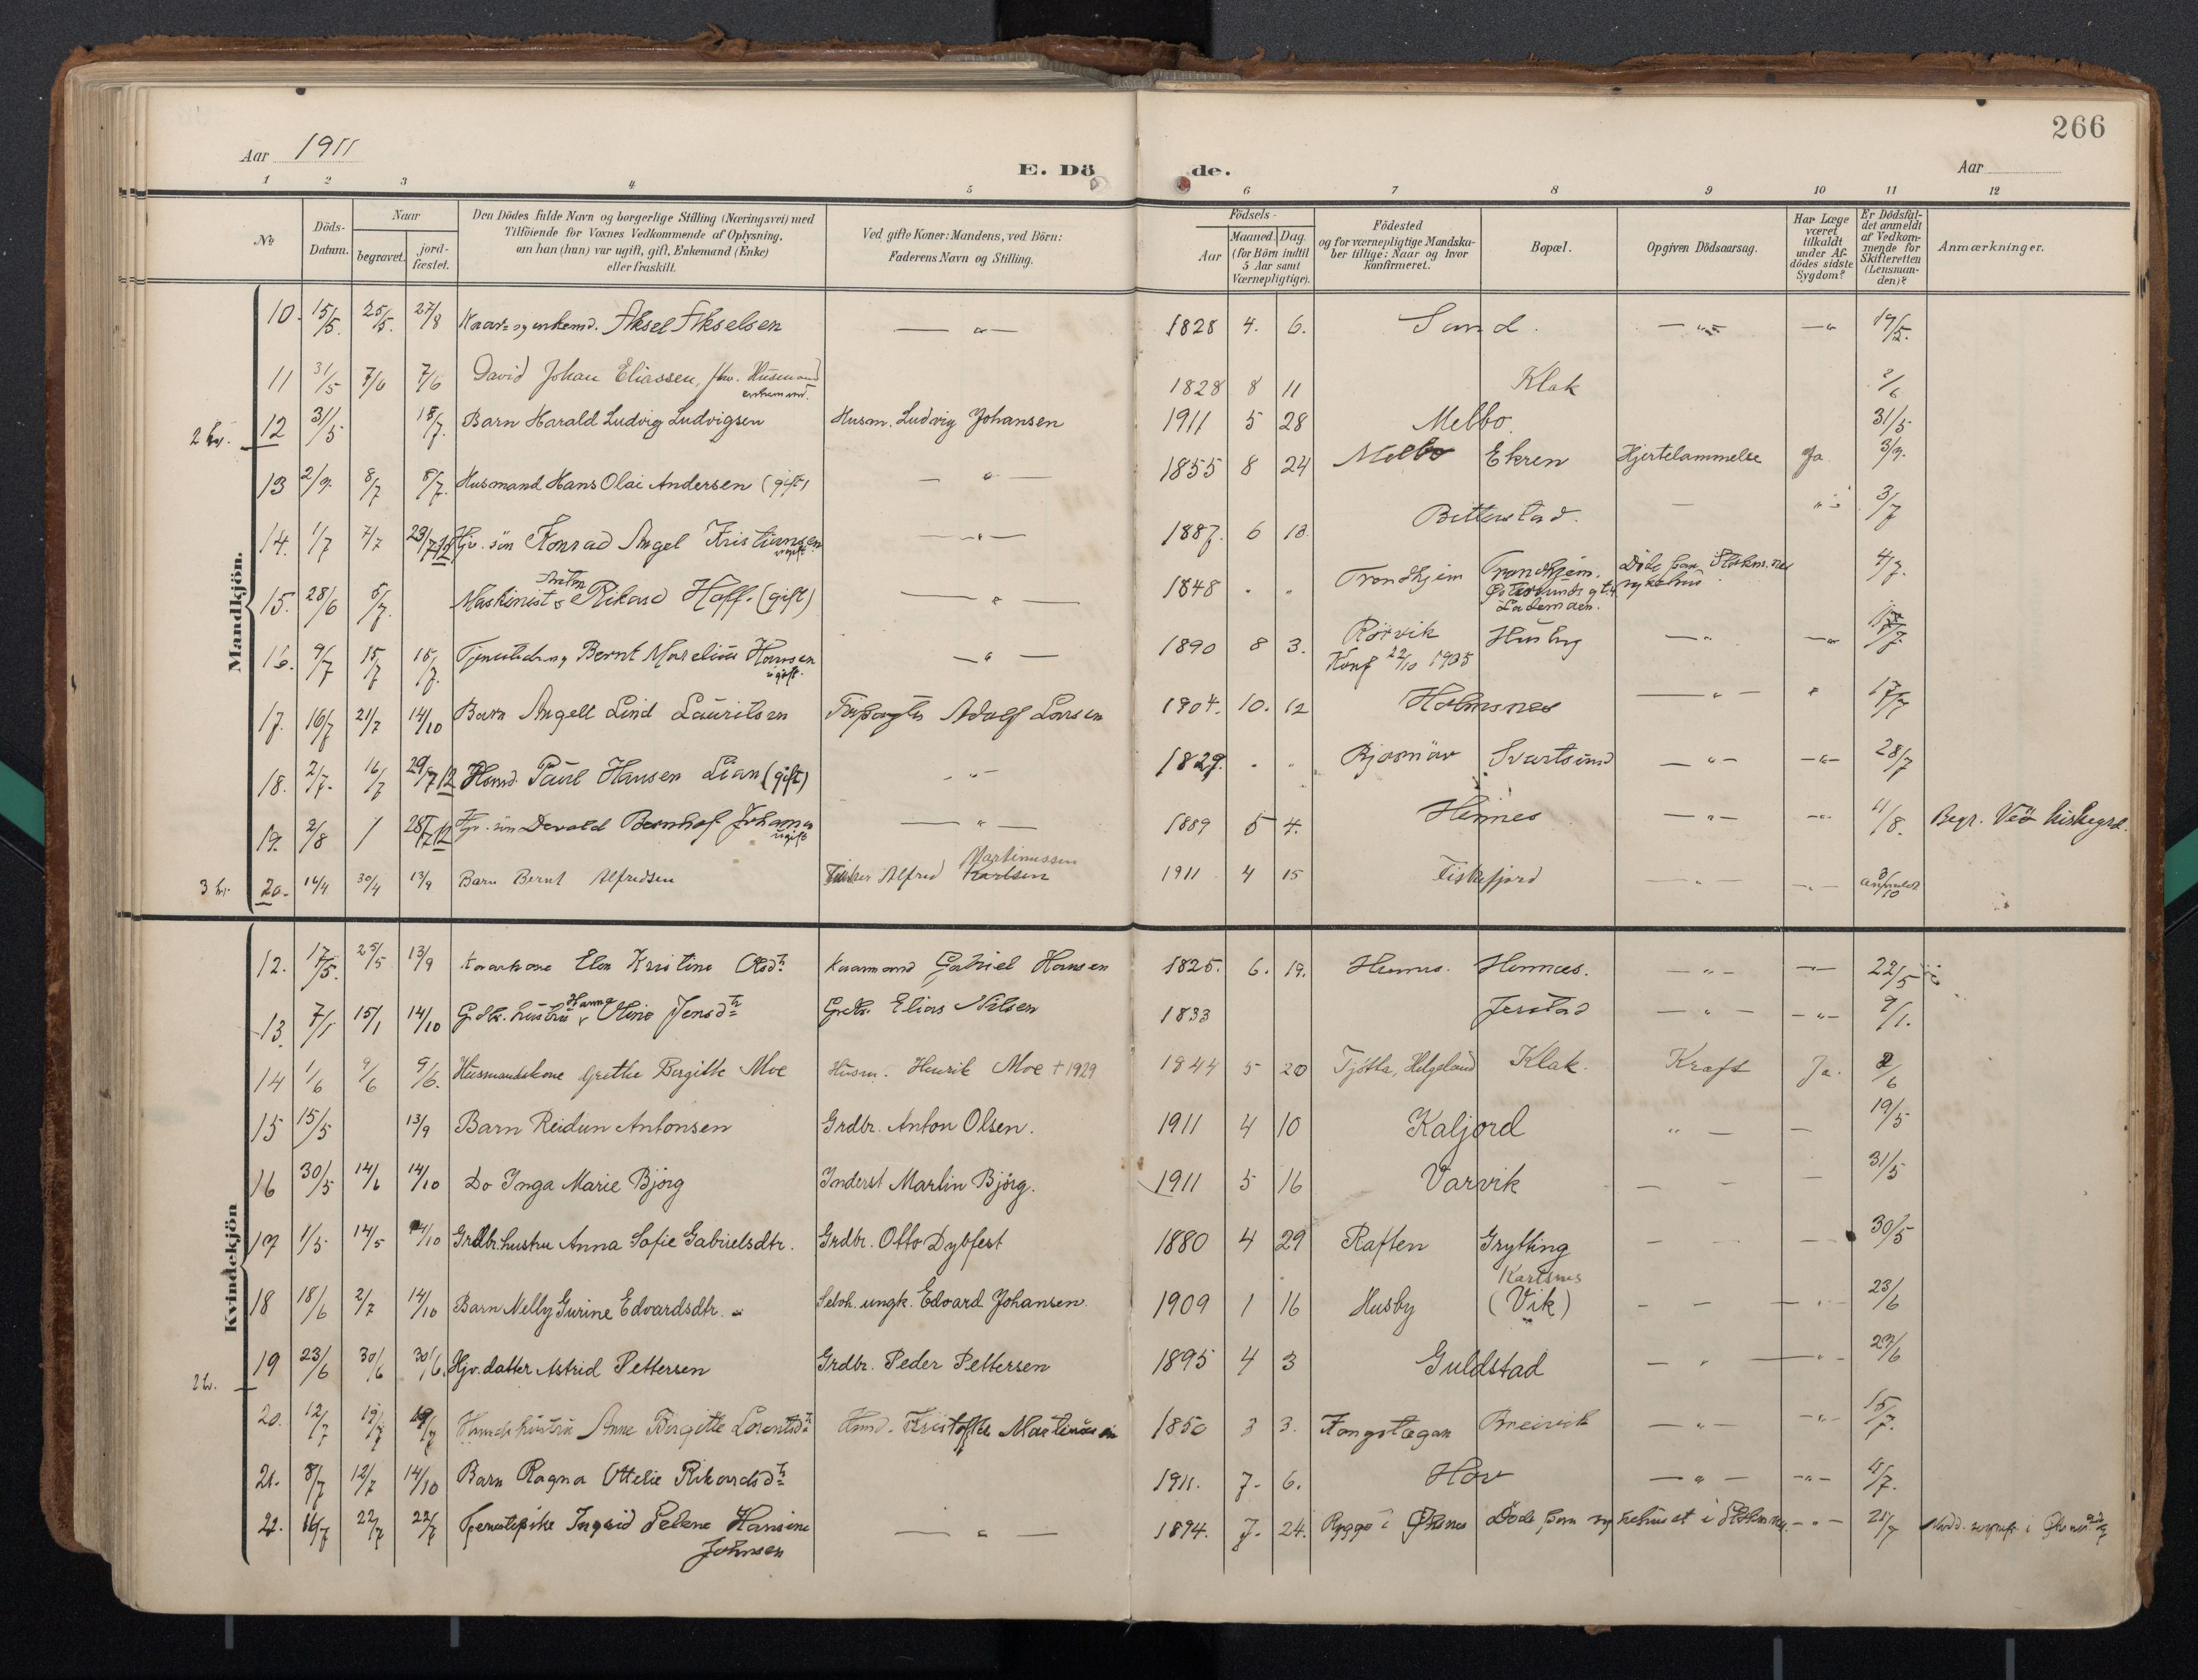 266
Aar 1911
E. Dö de.
Aar
1 2 3 4 5 6 7 8 9 10 11 12
No
Döds-Datum.
Naar
begravet.
jord-fæstet.
Den Dödes fulde Navn og borgerlige Stilling (Næringsvei) med
Tilföiende for Voxnes Vedkommende af Oplysning,
om han (hun) var ugift, gift, Enkemand (Enke)
eller fraskilt.
Ved gifte Koner: Mandens, ved Börn:
Faderens Navn og Stilling.
Födsels-
Aar
Maaned. Dag.
(for Börn indtil
5 Aar samt
Værnepligtige).
Födested
og for værnepligtige Mandska-
ber tillige: Naar og hvor
Konfirmeret.
Bopæl.
Opgiven Dödsaarsag.
Har Læge
været
tilkaldt
under Af-
dödes sidste
Sygdom?
Er Dödsfal-
det anmeldt
af Vedkom-
mende for
Skifteretten
(Lensman-
den)?
Anmærkninger.
Mandkjön.
10. 15/5. 25/5. 27/8 Aksel Akselsen — " — 1828 4. 6. Sand. — " — — " 19/5.
11 31/5 7/6 7/6 David Johan Eliassen, fhv. Husmand
enkemand. 1828 8 11 Klak 2/6
12 31/5 18/7. Barn Harald Ludvig Ludvigsen Husm. Ludvig Johansen 1911 5 28 Melbo 31/5
13 2/7. 8/7 8/7. Husmand Hans Olai Andersen (gift) — " — 1855 8 24 Melbo Ekren Hjertelammelse Ja 3/7.
14. 1/7 7/7 29/7 12 Gjv. sön Konrad Angel Kristiansen
ugift — " — 1887. 6 13 Bitterstad. — " 3/7
15. 28/6 5/7. Maskinist Anton Rikard Hoff. (gift) — " — 1848 " " Trondhjem Trondhjem.
Lademoen. Döde paa Stokm.nes
sykehus 4/7.
16. 9/7 15/7 15/7. Bernt Marelius Hansen
ugift. — " — 1890 8 3. Rörvik
Konf 22/10 1905 Husby — " — "
17. 16/7 21/7 14/10 Barn Angell Lind Lauritsen Adolf Larsen 1904. 10. 12 Holmsnes — " — " 17/7
18. 2/7. 16/7 29/7 12 Hsmd. Paul Hansen Lian (gift) - " - 1829. " " Bjarnöw Svartsund — " — — " — 28/7
19. 2/8 / 28/7 12 Gjv. sön Devold Bernhof Johans
ugift — " — 1889 5 4. Hennes — " — — " 4/8. Begr. Veö kirkegrd.
3 kv. 20. 16/4 30/4 13/9 Barn Bernt Alfredsen Fisker Alfred Karlsen
Martinussen 1911 4 15 Fiskfjord — " — — " — anmeldt
Kvindekjön
12. 17/5. 25/5 13/9 Elen Kristine Olsdtr. Kaarmand Gabriel Hansen 1825. 6. 19. Hennes. Hennes. — " — — 22/5
13. 7/1 15/1 14/10 Gdbr. hustru Hanna Oline Jensdtr Grdbr. Elias Nilsen 1833 Jerstad — " — — " — 9/1.
14 1/6 9/6 9/6. Husmandskone Grethe Bergitte Moe Husm. Henrik Moe + 1929 1844 5 20 Tjötta, Helgeland Klak. Kræft Ja. 2/6
15 15/5 13/9 Barn Reidun Antonsen Grdbr. Anton Olsen. 1911 4 10 Kaljord " — — 19/5
16 30/5 14/6 14/10 Do Inga Marie Bjórg Inderst Martin Bjórg. 1911 5 16 Varvik — — — 31/5
17 1/5 14/5 14/10 Grdbr. hustru Anna Sofie Gabrielsdtr. Grdbr. Otto Dybfest 1880 4 29 Raften Grytting - — — 30/5
18 18/6 2/7 14/10 Barn Nelly Gurine Edvardsdtr. Selvh. ungk. Edvard Johansen. 1909 1 16 Husby Karlsnes
(Vik) - — — 23/6
19 23/6 30/6 30/6. Hjv. datter Astrid Pettersen Grdbr. Peder Pettersen 1895 4 3 Guldstad — " — " - 27/6
20. 12/7 19/7 19/7 Hsmds hustru Anne Birgitte Lorentsdtr Hsmd. Kristoffer Martinussen 1850 3 3. Breivik — " — — " — 15/7.
21. 8/7 12/7 14/10 Barn Ragna Ottelie Rikardsdtr 1911. 7. 6. Hov — " — — " — 11/7.
22. 16/7 22/7 22/7 Tjenestepike Ingrid Pelene Hansine
Johnsen — " — 1894. 7. 24. Ryggö i Øksnes Döde paa sykehuset i Stokmnes — " — 21/7